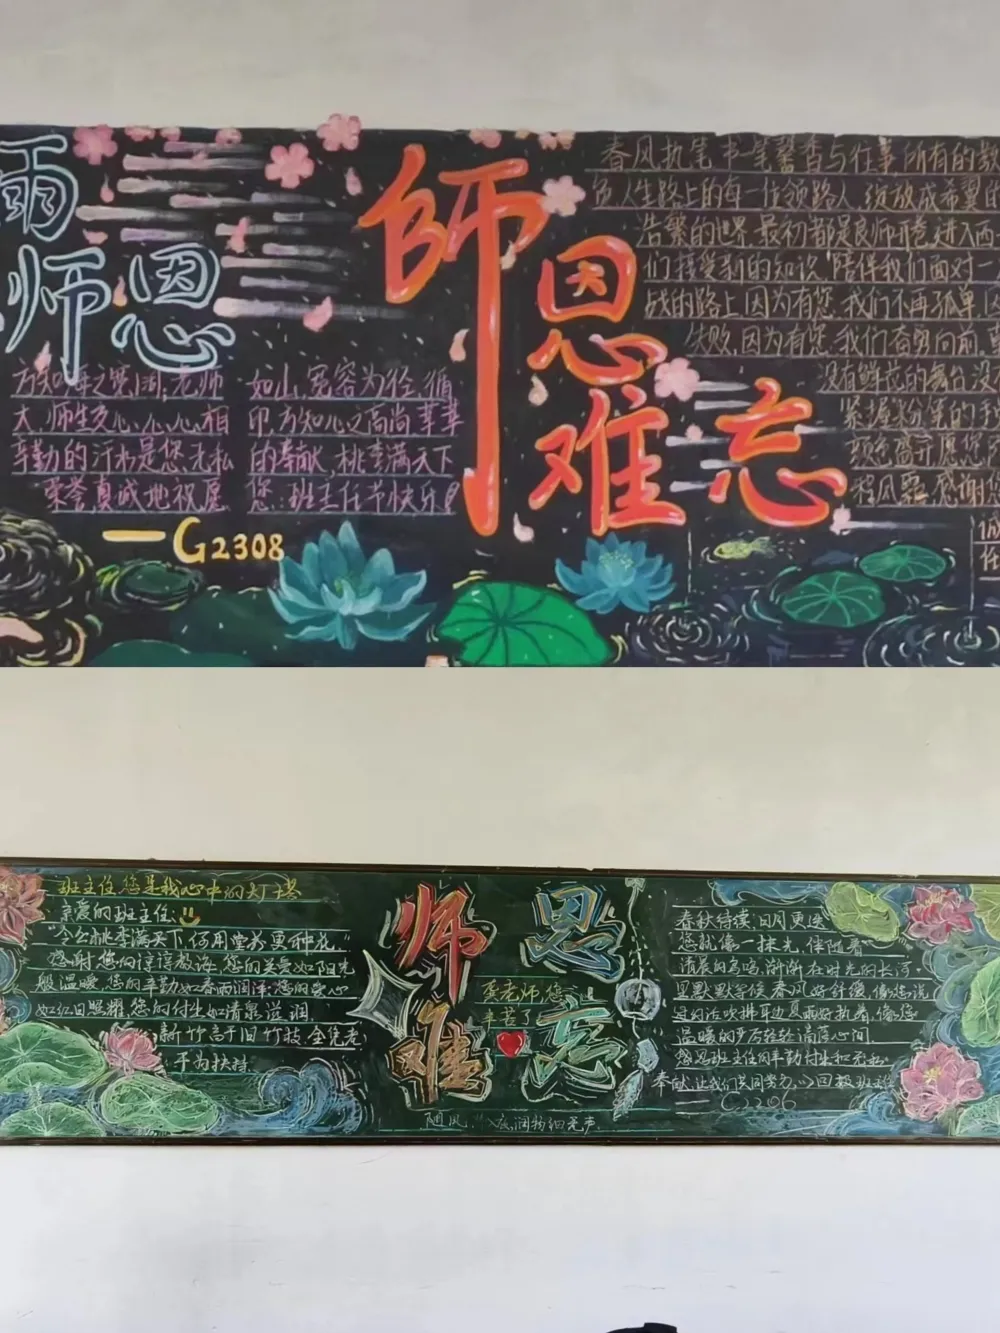 雨
师恩
师恩难忘
春风执笔书一笔馨香与往事所有的教
负人生路上的每一位领路人绽放成希翼的
浩繁的世界最初都是良师开卷进入西
们接受新的知识陪伴我们面对一
战的路上因为有您我们不再孤单因
失败,因为有您,我们奋勇向前,
没有鲜花的舞台没
紧握粉笔的手
颜色盛开愿您
程风雨,感谢您
方知海之宽阔,老师
大,师生交心,心心相
辛勤的汗水是您无私
荣誉,真诚地祝愿
如山,宽容为径,循
印,方知心之高尚 莘莘
的奉献,桃李满天下
您:班主任节快乐!
一G2308
班主任,您是我心中的灯塔
亲爱的班主任:
"令公桃李满天下,何用堂前更种花。"
感谢您的谆谆教诲,您的关爱如阳光
般温暖,您的辛勤如春雨润泽.您的爱心
如红日照耀,您的付出如清泉滋润.
新竹高于旧竹枝,全凭老
干为扶持.
师恩难忘
龚老师,您
辛苦了
随风 夜,润物细无声
春秋持续,日月更迭
您就像一抹光,伴随着
清晨的鸟鸣,渐渐在时光的长河
里默默等候.春风好舒缓,像您说
过的话吹拂耳边夏雨好热着,像您
温暖的严厉轻轻滴落心间
感恩班主任的辛勤付出和无私
奉献,让我们共同努力,以回报班主任
C2206